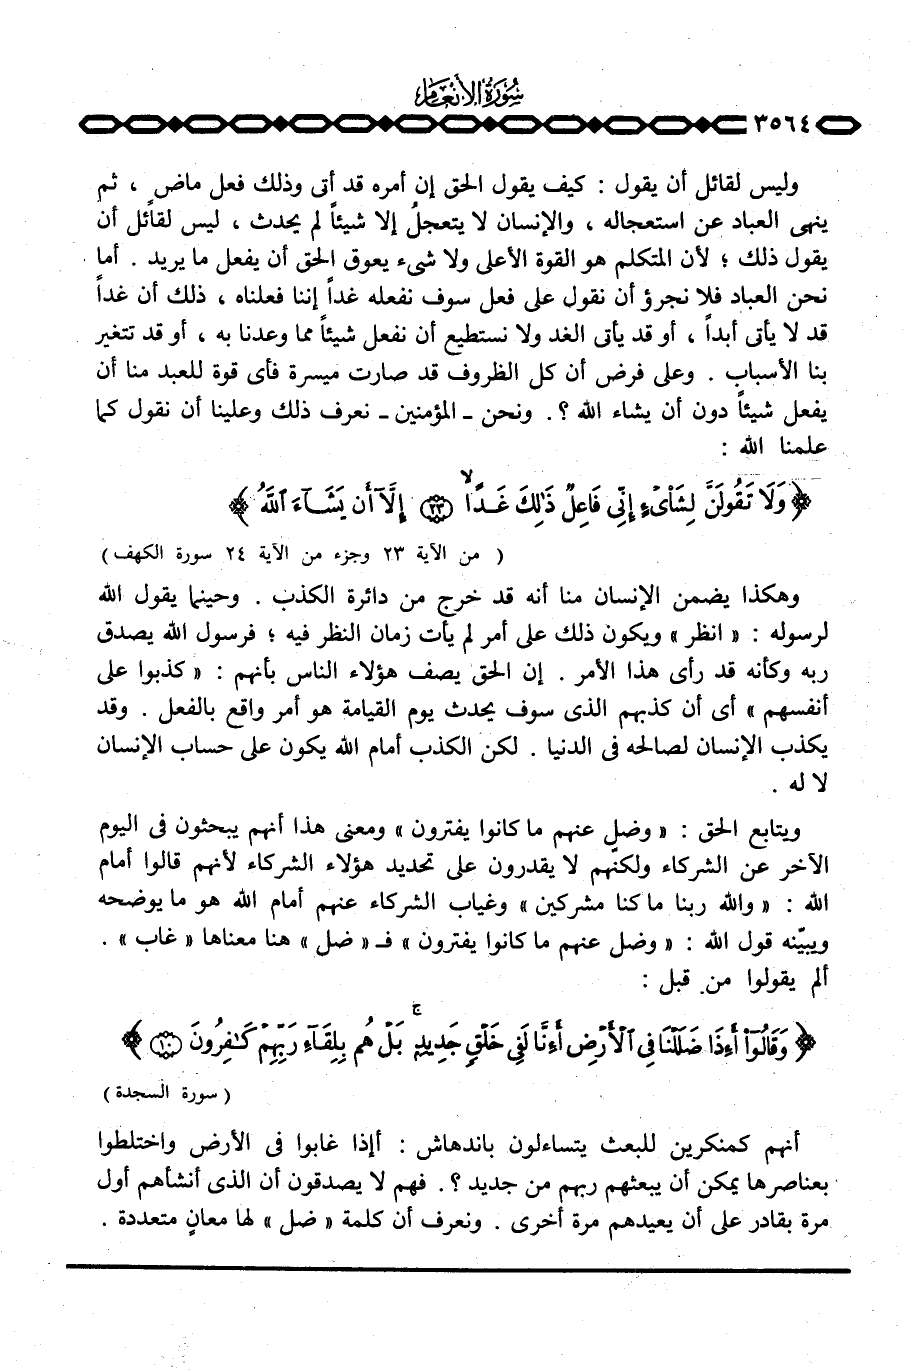 سُورَةُ الأَنْعَامِ
٣٥٦٤
وليس لقائل أن يقول : كيف يقول الحق إن أمره قد أتى وذلك فعل ماضٍ ، ثم
ينهى العباد عن استعجاله ، والإنسان لا يتعجل إلا شيئاً لم يحدث ، ليس لقائل أن
يقول ذلك ؛ لأن المتكلم هو القوة الأعلى ولا شىء يعوق الحق أن يفعل ما يريد . أما
نحن العباد فلا نجرؤ أن نقول على فعل سوف نفعله غداً إننا فعلناه ، ذلك أن غداً
قد لا يأتى أبداً ، أو قد يأتى الغد ولا نستطيع أن نفعل شيئاً مما وعدنا به ، أو قد تتغير
بنا الأسباب . وعلى فرض أن كل الظروف قد صارت ميسرة فأى قوة للعبد منا أن
يفعل شيئاً دون أن يشاء الله ؟. ونحن ـ المؤمنين ـ نعرف ذلك وعلينا أن نقول كما
علمنا الله :
﴿ وَلَا تَقُولَنَّ لِشَاْىْءٍ إِنِّى فَاعِلٌ ذَٰلِكَ غَدًا ۙ ﴿٢٣﴾ إِلَّآ أَن يَشَآءَ ٱللَّهُ ﴾
( من الآية ٢٣ وجزء من الآية ٢٤ سورة الكهف )
وهكذا يضمن الإنسان منا أنه قد خرج من دائرة الكذب . وحينما يقول الله
لرسوله : « انظر » ويكون ذلك على أمر لم يأت زمان النظر فيه ؛ فرسول الله يصدق
ربه وكأنه قد رأى هذا الأمر . إن الحق يصف هؤلاء الناس بأنهم : « كذبوا على
أنفسهم » أى أن كذبهم الذى سوف يحدث يوم القيامة هو أمر واقع بالفعل . وقد
يكذب الإنسان لصالحه فى الدنيا . لكن الكذب أمام الله يكون على حساب الإنسان
لا له .
ويتابع الحق : « وضل عنهم ما كانوا يفترون » ومعنى هذا أنهم يبحثون فى اليوم
الآخر عن الشركاء ولكنّهم لا يقدرون على تحديد هؤلاء الشركاء لأنهم قالوا أمام
الله : « والله ربنا ما كنا مشركين » وغياب الشركاء عنهم أمام الله هو ما يوضحه
ويبيّنه قول الله : « وضل عنهم ما كانوا يفترون » فـ « ضل » هنا معناها « غاب » .
ألم يقولوا من قبل :
﴿ وَقَالُوٓاْ أَءِذَا ضَلَلْنَا فِى ٱلْأَرْضِ أَءِنَّا لَفِى خَلْقٍ جَدِيدٍۭ ۚ بَلْ هُم بِلِقَآءِ رَبِّهِمْ كَـٰفِرُونَ ﴿١٠﴾ ﴾
( سورة السجدة )
أنهم كمنكرين للبعث يتساءلون باندهاش : أإذا غابوا فى الأرض واختلطوا
بعناصرها يمكن أن يبعثهم ربهم من جديد ؟. فهم لا يصدقون أن الذى أنشأهم أول
مرة بقادر على أن يعيدهم مرة أخرى . ونعرف أن كلمة « ضل » لها معانٍ متعددة .